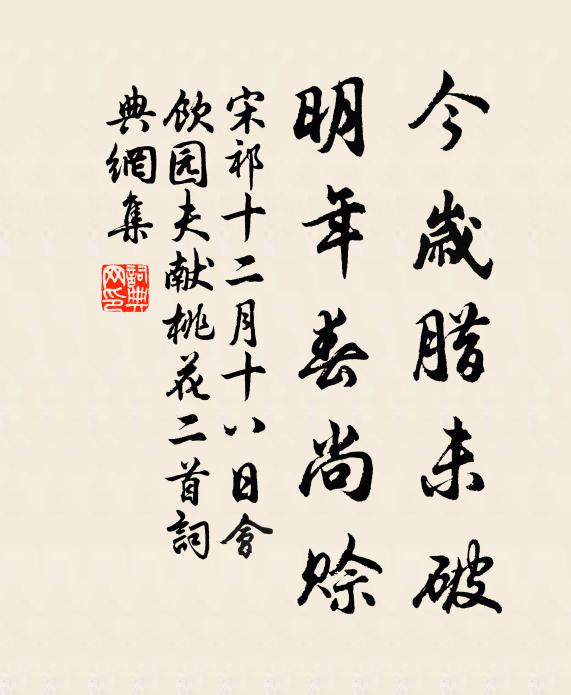 今歲腊未破
明年春尚賒
宋祁十二月十八日會
飲园夫献桃花二首詞
典網集
詞典网印